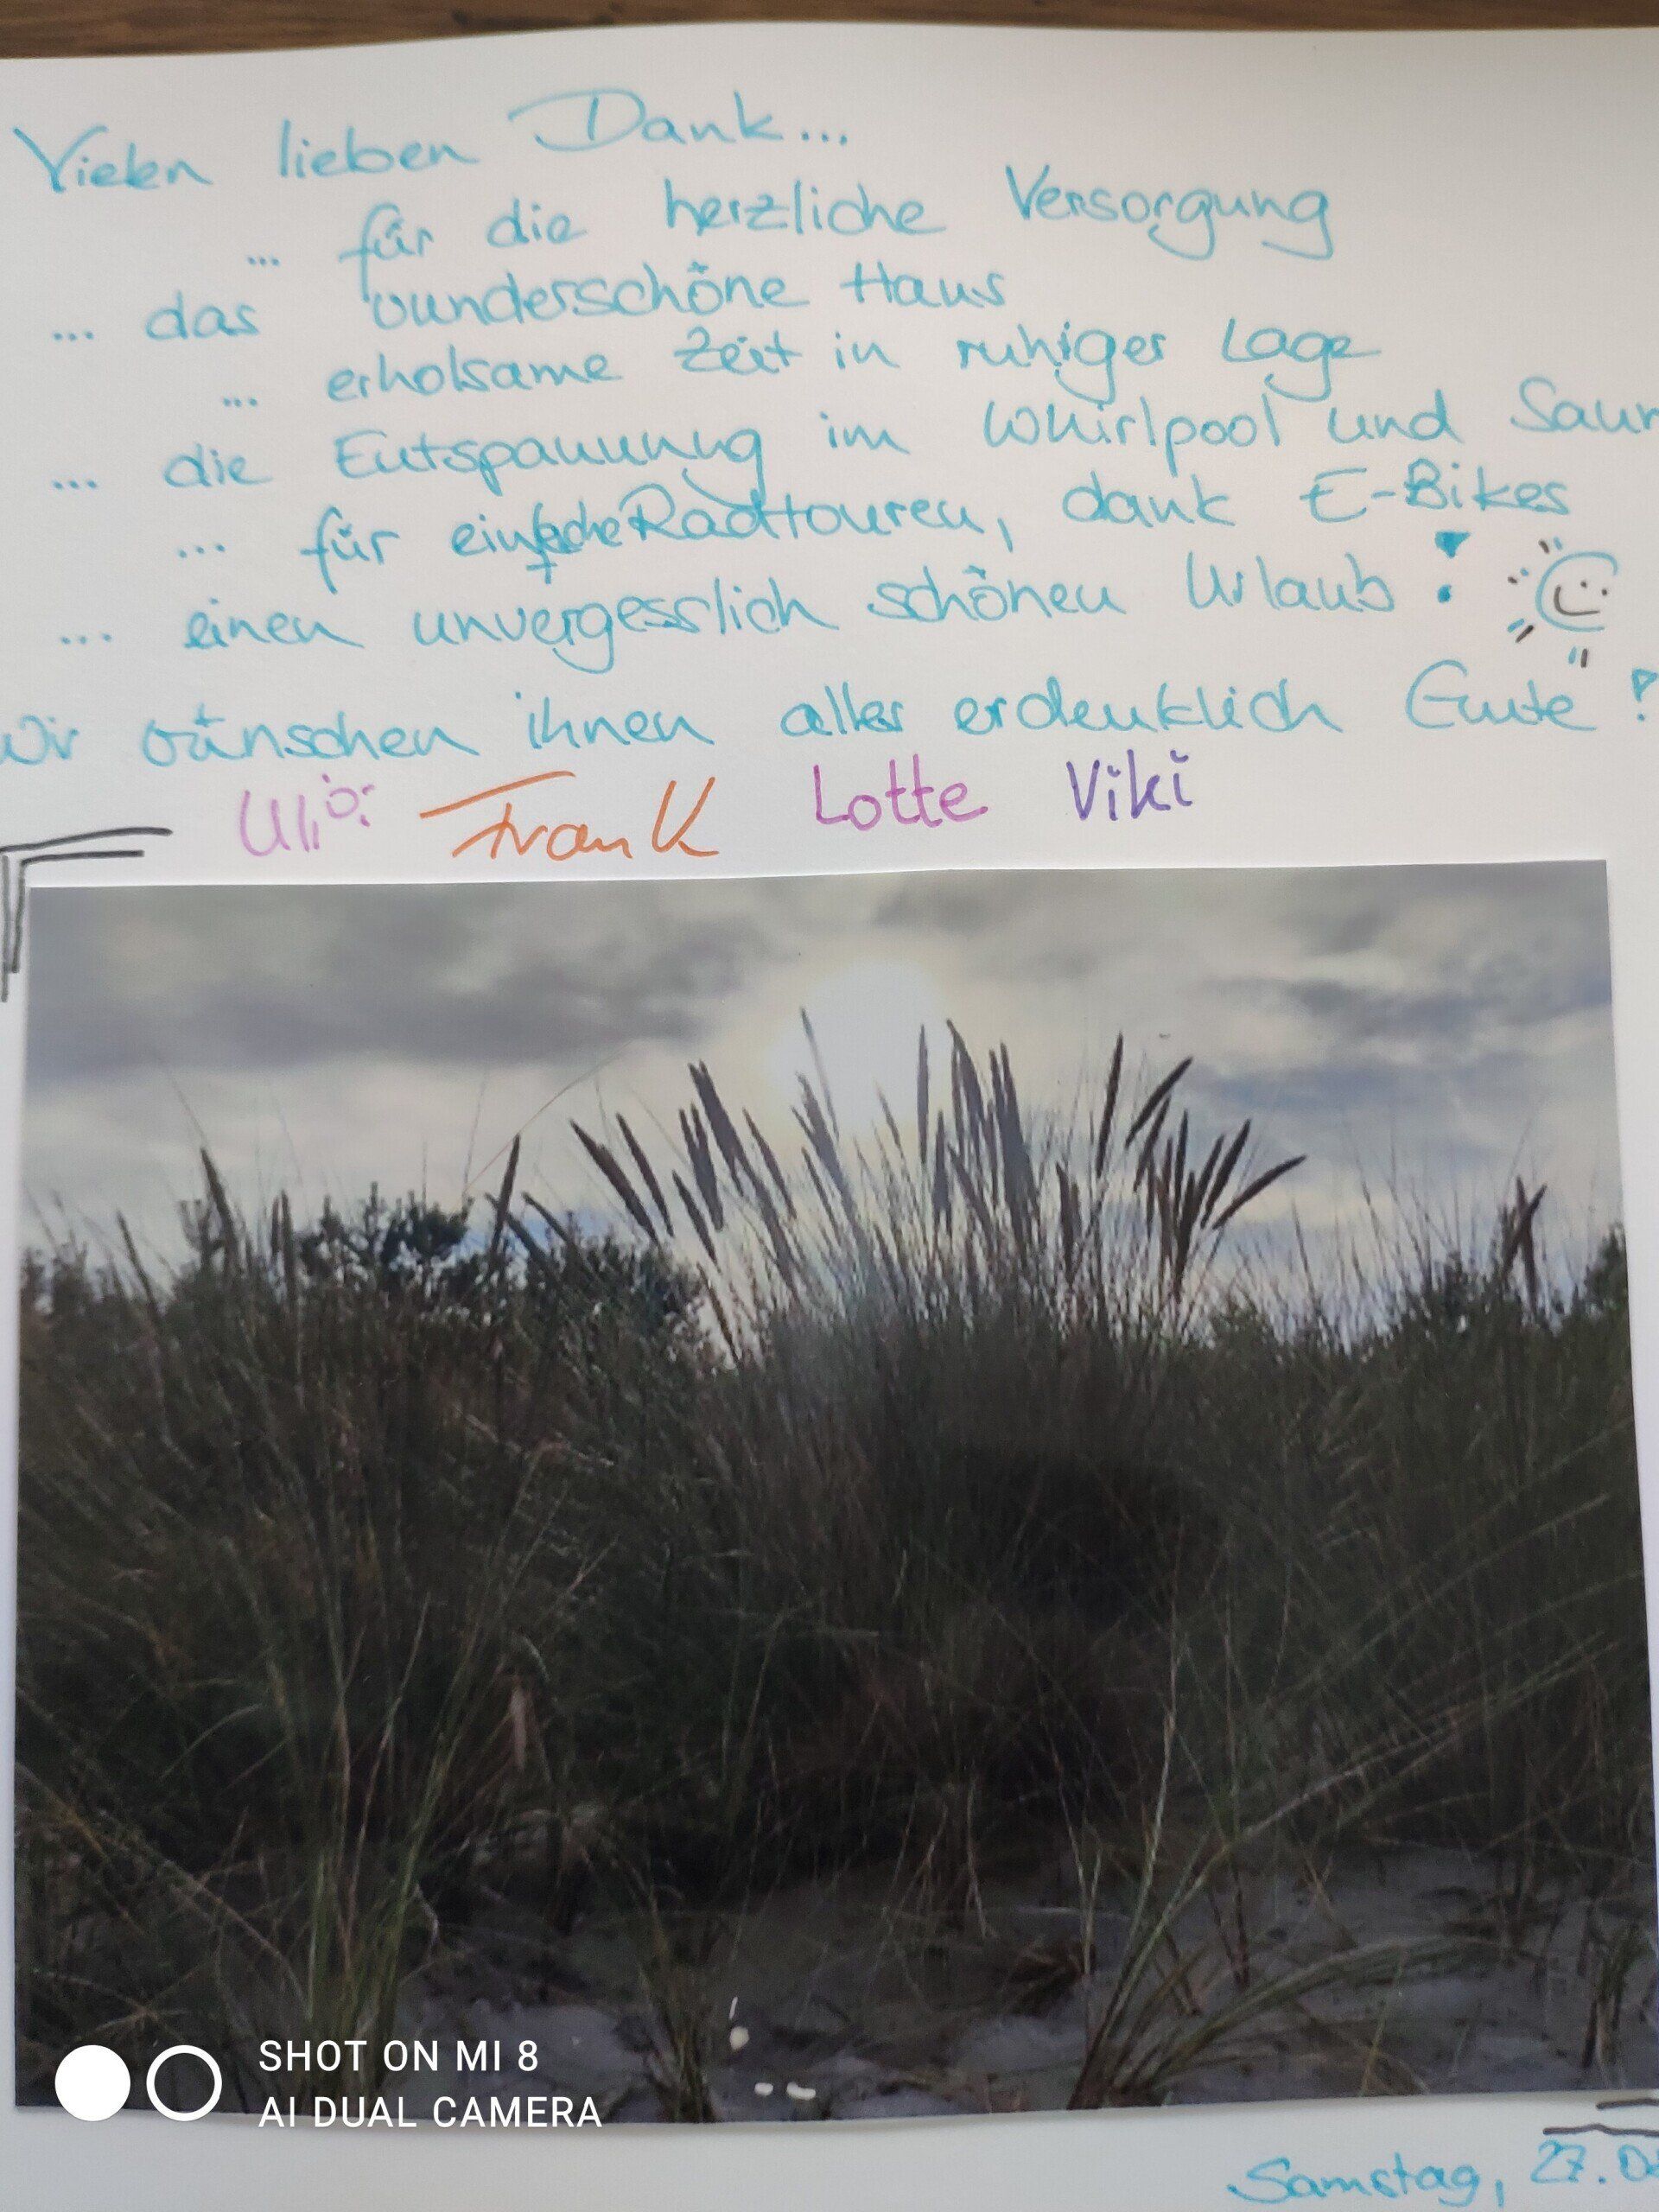 Vielen lieben Dank...
... für die herzliche Versorgung
... das wunderschöne Haus
... erholsame Zeit in ruhiger Lage
... die Entspannung im Whirlpool und Saun
... für einfache Radtouren, dank E-Bikes
... einen unvergesslich schönen Urlaub!
Wir wünschen ihnen alles erdenklich Gute!
Uli Frank Lotte Viki
SHOT ON MI 8
AI DUAL CAMERA
Samstag, 27.0